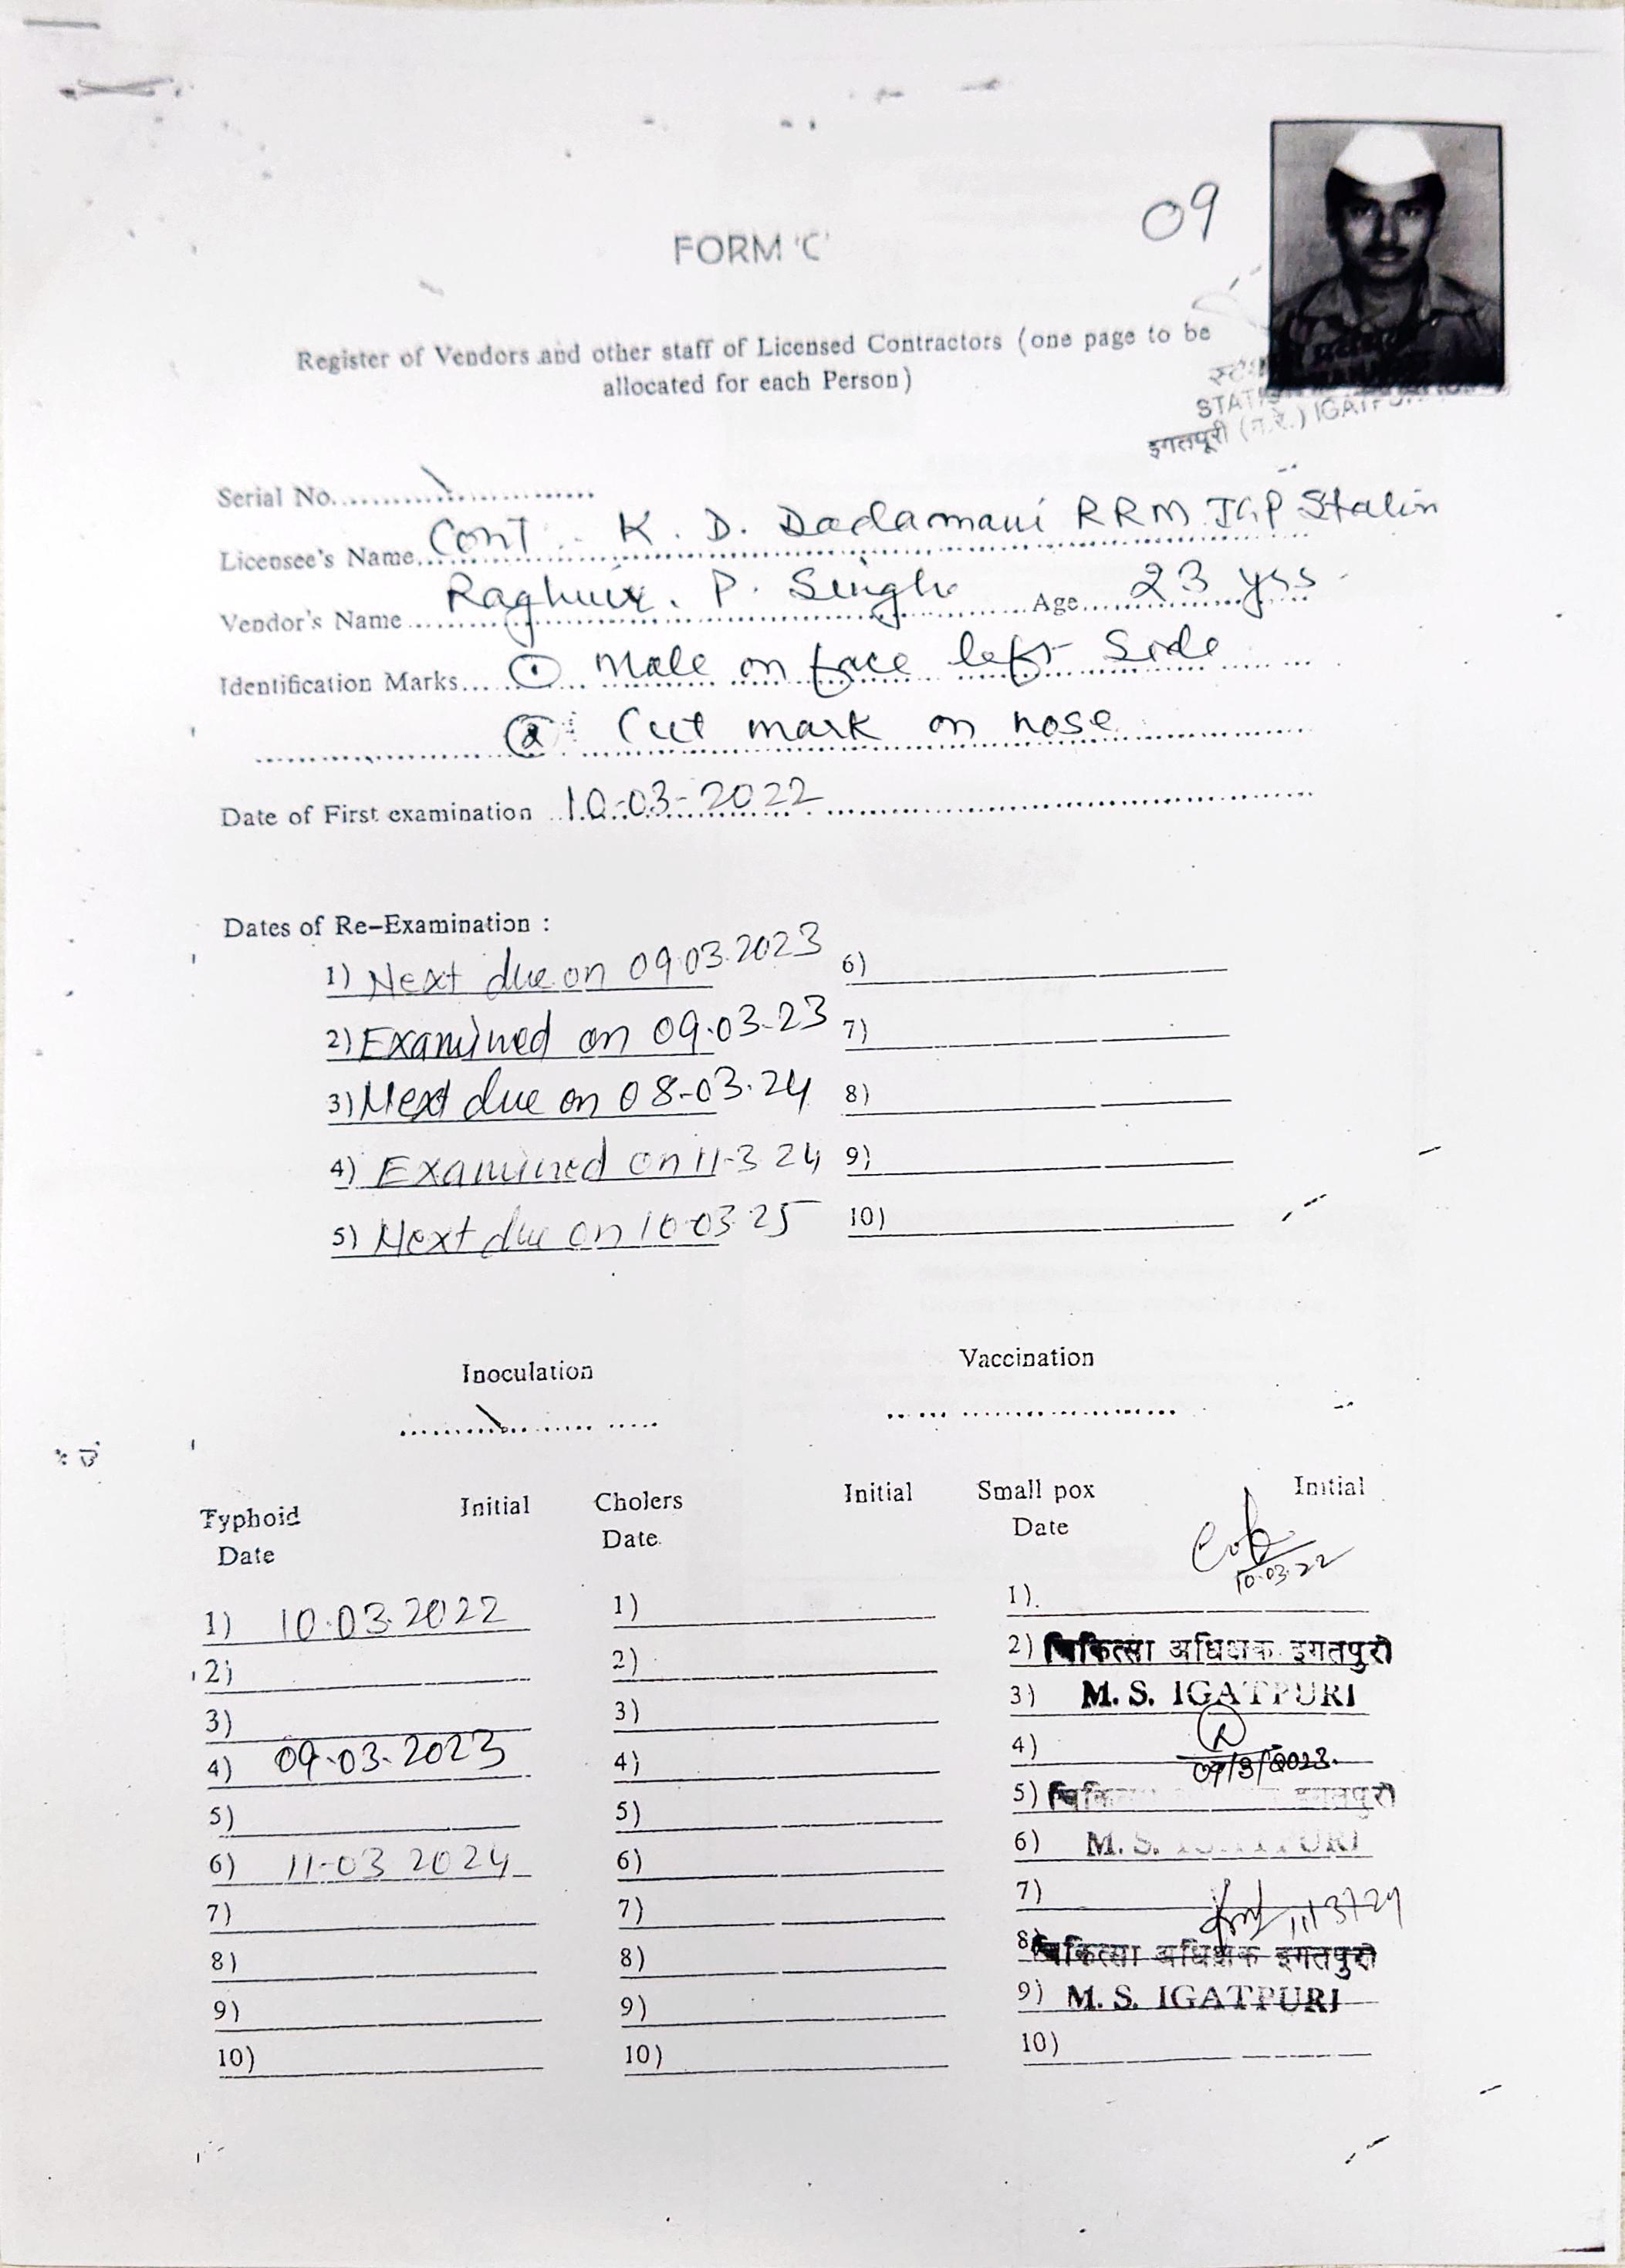 09
FORM 'C'
Register of Vendors and other staff of Licensed Contractors (one page to be
allocated for each Person)
STATI
इगतपूरी (म.रे.) IGATPURI
Serial No.
Licensee's Name Cont. K. D. Dadamani RRM IGP Station
Vendor's Name Raghuvir. P. Singh Age 23 yrs
Identification Marks ① Mole on face left Side
② Cut mark on nose
Date of First examination 10-03-2022
Dates of Re-Examination :
1) Next due on 09.03.2023 6)
2) Examined on 09.03-23 7)
3) Next due on 08-03.24 8)
4) Examined on 11-3 24 9)
5) Next due on 10-03-25 10)
Inoculation Vaccination
Typhoid Initial Cholers Initial Small pox Initial
Date Date. Date
10.03.22
1) 10.03.2022 1) 1).
2) 2) 2) चिकित्सा अधिक्षक इगतपुरी
3) 3) 3) M. S. IGATPURI
4) 09.03.2023 4) 4) 09/3/2023.
5) 5) 5) इगतपुरी
6) 11-03 2024 6) 6) M. S. IGATPURI
7) 7) 7) 11/3/24
8) 8) 8) चिकित्सा अधिक्षक इगतपुरी
9) 9) 9) M. S. IGATPURI
10) 10) 10)